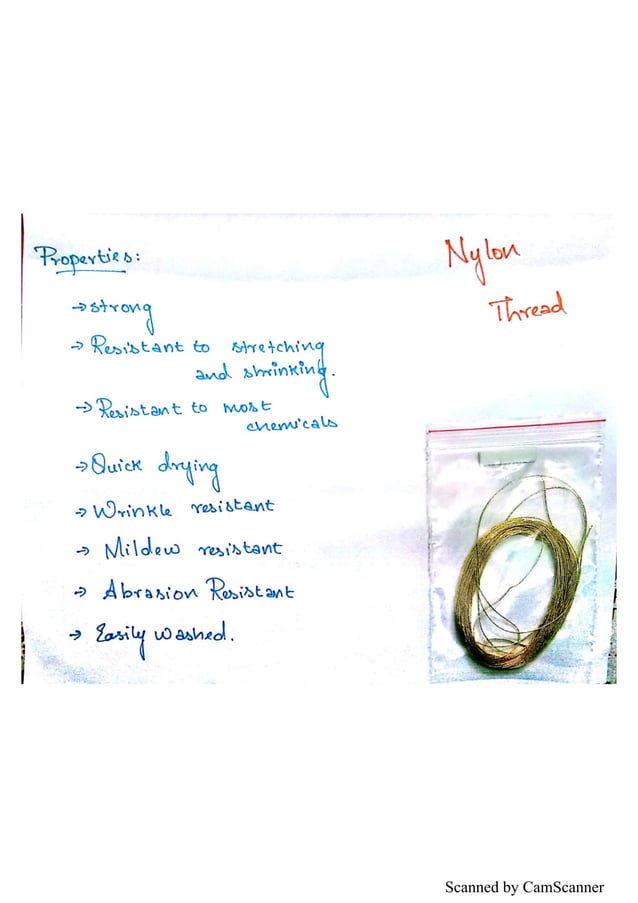 Properties:
Nylon
Thread
→ strong
→ Resistant to stretching
and shrinking.
→ Resistant to most
chemicals
→ Quick drying
→ Wrinkle resistant
→ Mildew resistant
→ Abrasion Resistant
→ Easily washed.
Scanned by CamScanner